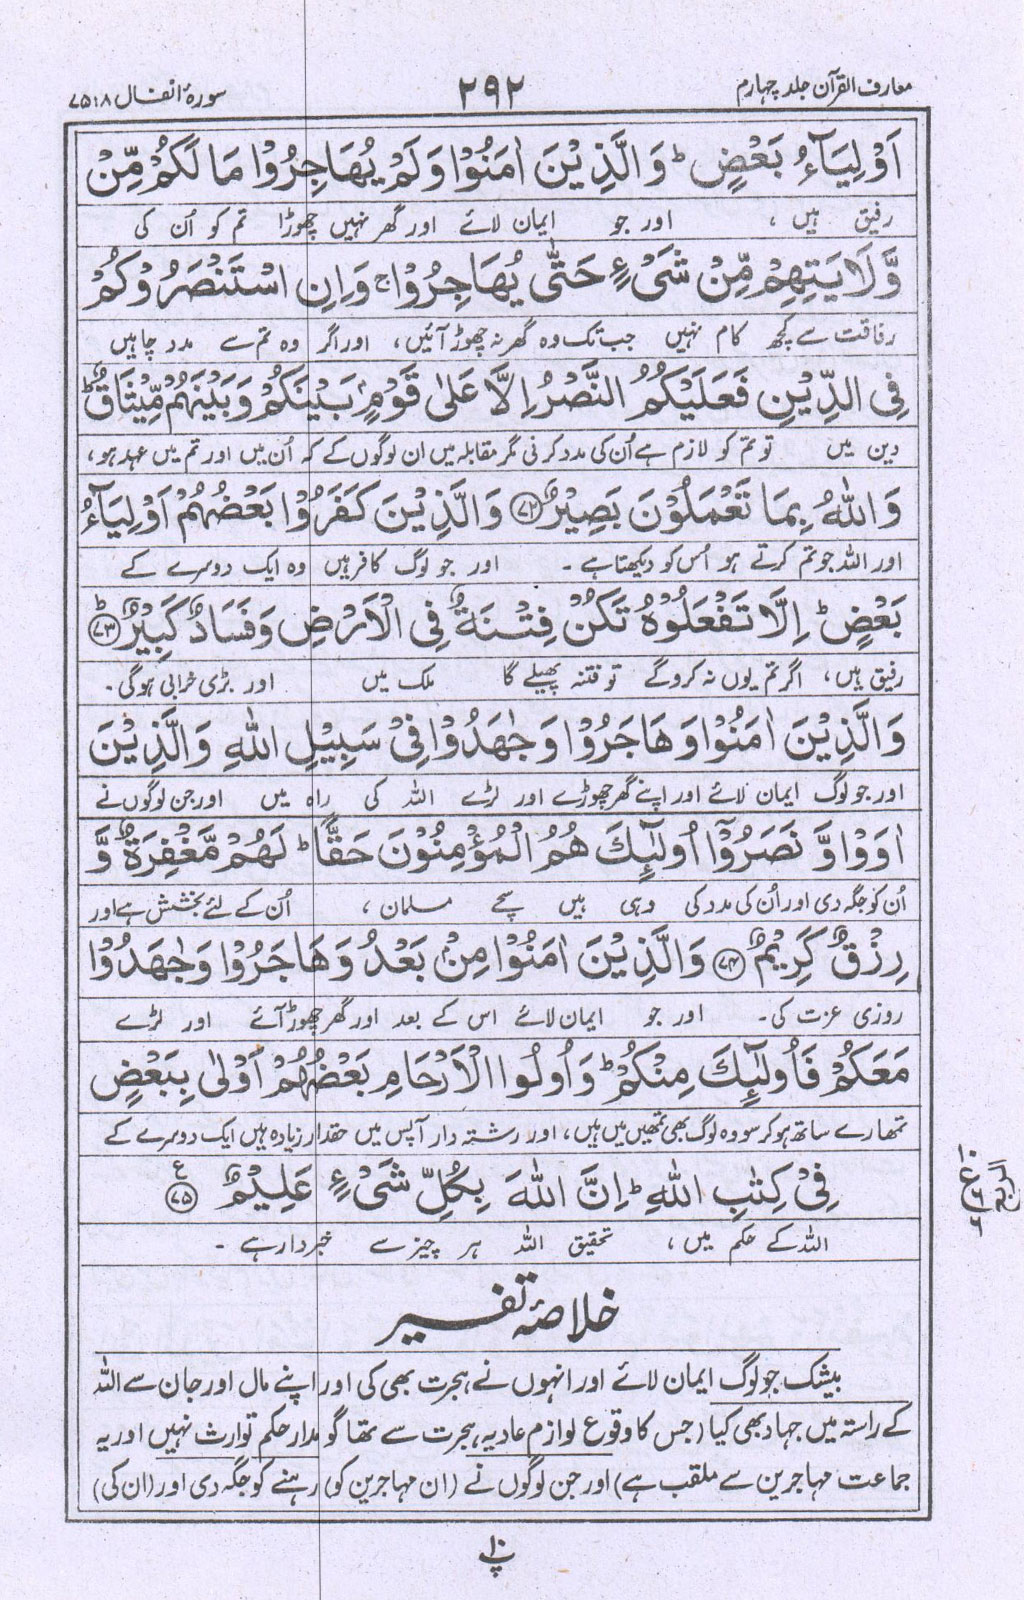 معارف القرآن جلد چہارم
۲۹۲
سورۂ انفال ۸ : ۷۵
اَوْلِيَآءُ بَعْضٍ ؕ وَالَّذِيْنَ اٰمَنُوْا وَلَمْ يُهَاجِرُوْا مَا لَكُمْ مِّنْ
رفیق ہیں ، اور جو ایمان لائے اور گھر نہیں چھوڑا تم کو اُن کی
وَّلَايَتِهِمْ مِّنْ شَيْءٍ حَتّٰى يُهَاجِرُوْا ۚ وَاِنِ اسْتَنْصَرُوْكُمْ
رفاقت سے کچھ کام نہیں جب تک وہ گھر نہ چھوڑ آئیں ، اور اگر وہ تم سے مدد چاہیں
فِى الدِّيْنِ فَعَلَيْكُمُ النَّصْرُ اِلَّا عَلٰى قَوْمٍۭ بَيْنَكُمْ وَبَيْنَهُمْ مِّيْثَاقٌ ؕ
دین میں تو تم کو لازم ہے اُن کی مدد کرنی مگر مقابلہ میں ان لوگوں کے کہ اُن میں اور تم میں عہد ہو ،
وَاللّٰهُ بِمَا تَعْمَلُوْنَ بَصِيْرٌ ﴿۷۲﴾ وَالَّذِيْنَ كَفَرُوْا بَعْضُهُمْ اَوْلِيَآءُ
اور اللہ جو تم کرتے ہو اُس کو دیکھتا ہے ۔ اور جو لوگ کافر ہیں وہ ایک دوسرے کے
بَعْضٍ ؕ اِلَّا تَفْعَلُوْهُ تَكُنْ فِتْنَةٌ فِى الْاَرْضِ وَفَسَادٌ كَبِيْرٌ ﴿۷۳﴾ ؕ
رفیق ہیں ، اگر تم یوں نہ کرو گے تو فتنہ پھیلے گا ملک میں اور بڑی خرابی ہوگی ۔
وَالَّذِيْنَ اٰمَنُوْا وَهَاجَرُوْا وَجٰهَدُوْا فِىْ سَبِيْلِ اللّٰهِ وَالَّذِيْنَ
اور جو لوگ ایمان لائے اور اپنے گھر چھوڑے اور لڑے اللہ کی راہ میں اور جن لوگوں نے
اٰوَوْا وَّ نَصَرُوْٓا اُولٰٓئِكَ هُمُ الْمُؤْمِنُوْنَ حَقًّا ؕ لَهُمْ مَّغْفِرَةٌ وَّ
اُن کو جگہ دی اور اُن کی مدد کی وہی ہیں سچے مسلمان ، اُن کے لئے بخشش ہے اور
رِزْقٌ كَرِيْمٌ ﴿۷۴﴾ وَالَّذِيْنَ اٰمَنُوْا مِنْۢ بَعْدُ وَهَاجَرُوْا وَجٰهَدُوْا
روزی عزت کی ۔ اور جو ایمان لائے اس کے بعد اور گھر چھوڑ آئے اور لڑے
مَعَكُمْ فَاُولٰٓئِكَ مِنْكُمْ ؕ وَاُولُوا الْاَرْحَامِ بَعْضُهُمْ اَوْلٰى بِبَعْضٍ
تمھارے ساتھ ہو کر سو وہ لوگ بھی تمھیں میں ہیں ، اور رشتہ دار آپس میں حقدار زیادہ ہیں ایک دوسرے کے
فِىْ كِتٰبِ اللّٰهِ ؕ اِنَّ اللّٰهَ بِكُلِّ شَيْءٍ عَلِيْمٌ ﴿۷۵﴾ ع
اللہ کے حکم میں ، تحقیق اللہ ہر چیز سے خبردار ہے ۔
خلاصۂ تفسیر
بیشک جو لوگ ایمان لائے اور انہوں نے ہجرت بھی کی اور اپنے مال اور جان سے اللہ
کے راستہ میں جہاد بھی کیا (جس کا وقوع لوازم عادیہ ہجرت سے تھا گو مدار حکم توارث نہیں اور یہ
جماعت مہاجرین سے ملقب ہے) اور جن لوگوں نے (ان مہاجرین کو) رہنے کو جگہ دی اور (ان کی)